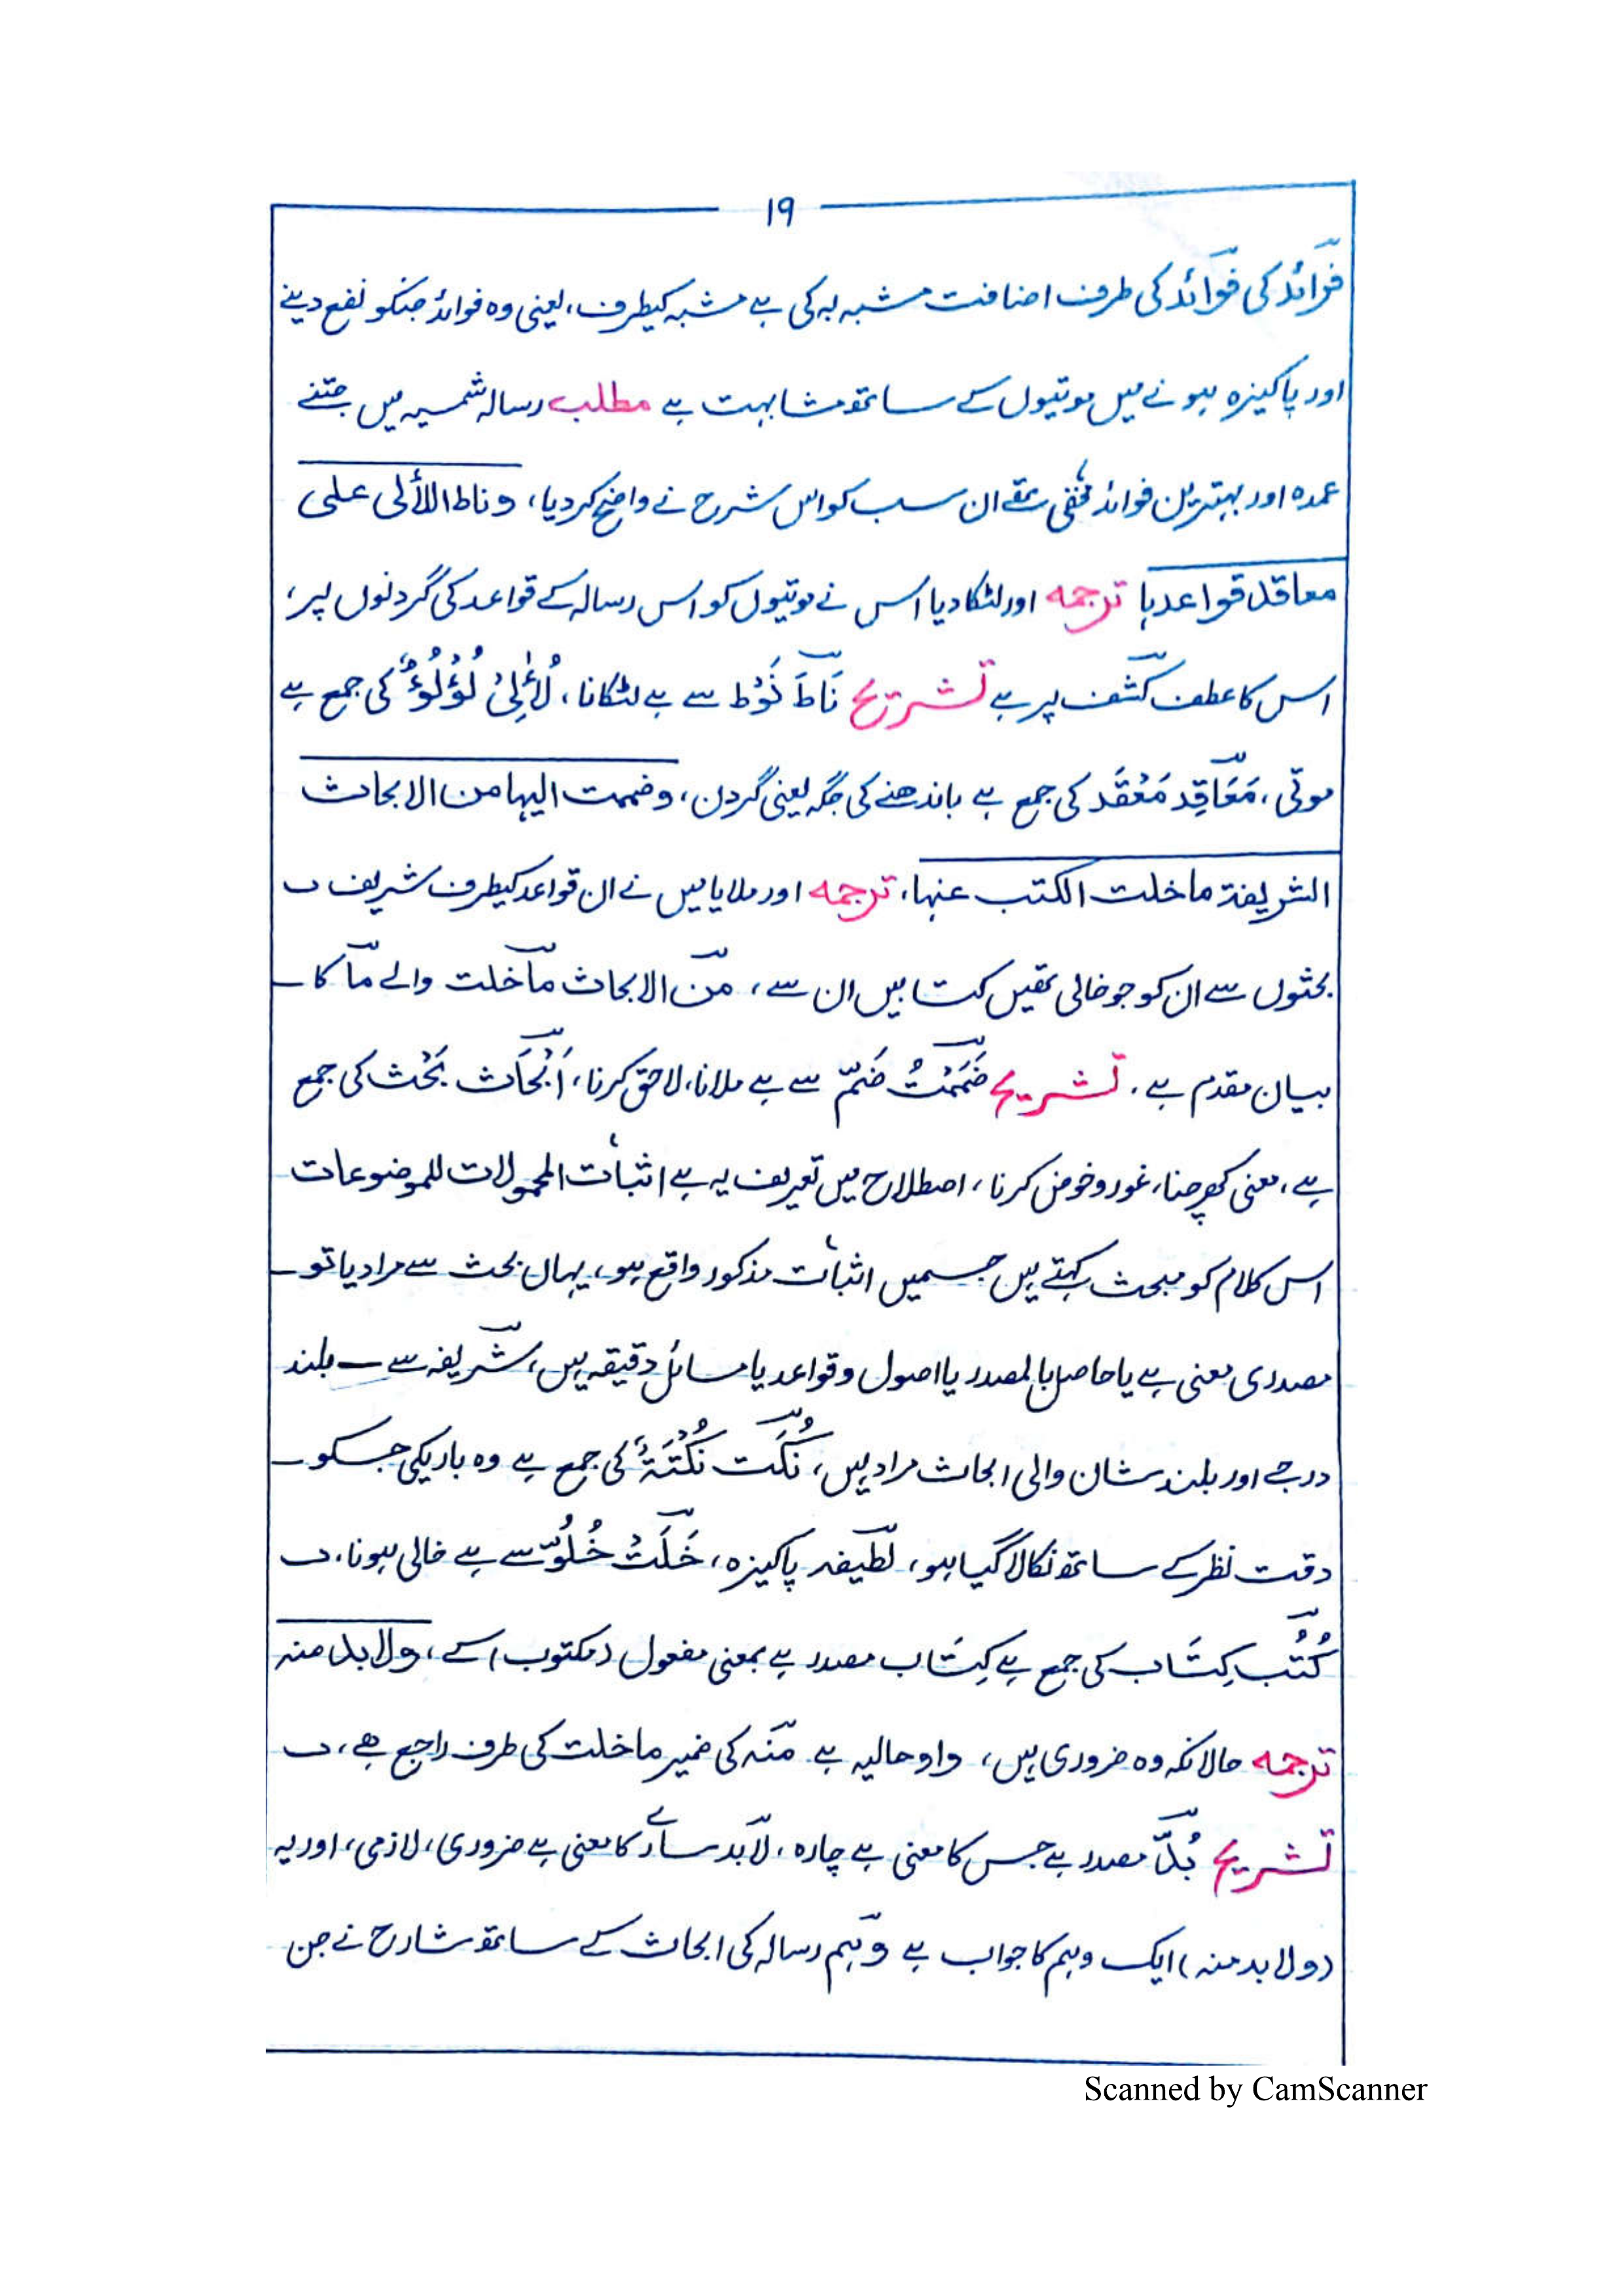 ۱۹
فرائد کی فوائد کی طرف اضافت مشبہ بہ کی ہے مشبہ کیطرف، یعنی وہ فوائد جنکو نفع دینے
اور پاکیزہ ہونے میں موتیوں کے ساتھ مشابہت ہے مطلب رسالہ شمسیہ میں جتنے
عمدہ اور بہترین فوائد مخفی تھے ان سب کو اس شرح نے واضح کردیا، وناط اللألی علی
معاقد قواعدہا ترجمہ اور لٹکا دیا اس نے موتیوں کو اس رسالہ کے قواعد کی گردنوں پر،
اس کا عطف کشف پر ہے تشریح نَاطَ نَوْط سے ہے لٹکانا، لُأٰلِیْ لُؤْلُوءٌ کی جمع ہے
موتی، مَعَاقِد مَعْقَد کی جمع ہے باندھنے کی جگہ یعنی گردن، وضممت الیہا من الابحاث
الشریفۃ ماخلت الکتب عنہا، ترجمہ اور ملایا میں نے ان قواعد کیطرف شریف
بحثوں سے ان کو جو خالی تھیں کتابیں ان سے، من الابحاث ماخلت والے ما کا
بیان مقدم ہے، تشریح ضَمَمْتُ ضَمّ سے ہے ملانا، لاحق کرنا، اَبْحَاث بَحْث کی جمع
ہے، معنی کھرچنا، غوروخوض کرنا، اصطلاح میں تعریف یہ ہے اثبات المحمولات للموضوعات
اس کلام کو مبحث کہتے ہیں جسمیں اثبات مذکور واقع ہو، یہاں بحث سے مراد یا تو
مصدری معنی ہے یا حاصل بالمصدر یا اصول وقواعد یا مسائل دقیقہ ہیں، شریفہ سے بلند
درجے اور بلند شان والی ابحاث مراد ہیں، نُکَت نُکْتَۃٌ کی جمع ہے وہ باریکی جسکو
دقت نظر کے ساتھ نکالا گیا ہو، لطیفہ پاکیزہ، خَلَتْ خُلُوّ سے ہے خالی ہونا،
کُتُب کِتَاب کی جمع ہے کِتَاب مصدر ہے بمعنی مفعول (مکتوب) کے، ولابد منہ
ترجمہ حالانکہ وہ ضروری ہیں، واو حالیہ ہے منہ کی ضمیر ماخلت کی طرف راجع ہے،
تشریح بُدّ مصدر ہے جس کا معنی ہے چارہ، لابد سارے کا معنی ہے ضروری، لازمی، اور یہ
(ولا بد منہ) ایک وہم کا جواب ہے وہم رسالہ کی ابحاث کے ساتھ شارح نے جن
Scanned by CamScanner